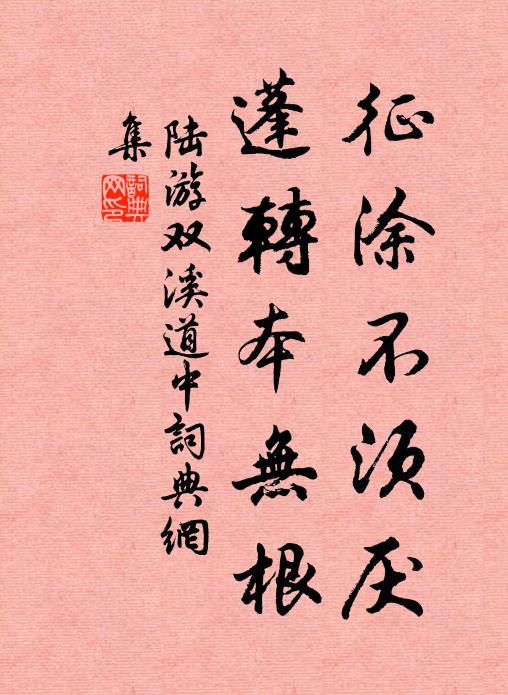 征涂不须厌
蓬轉本無根
陆游双溪道中詞典網
集
詞典
网印